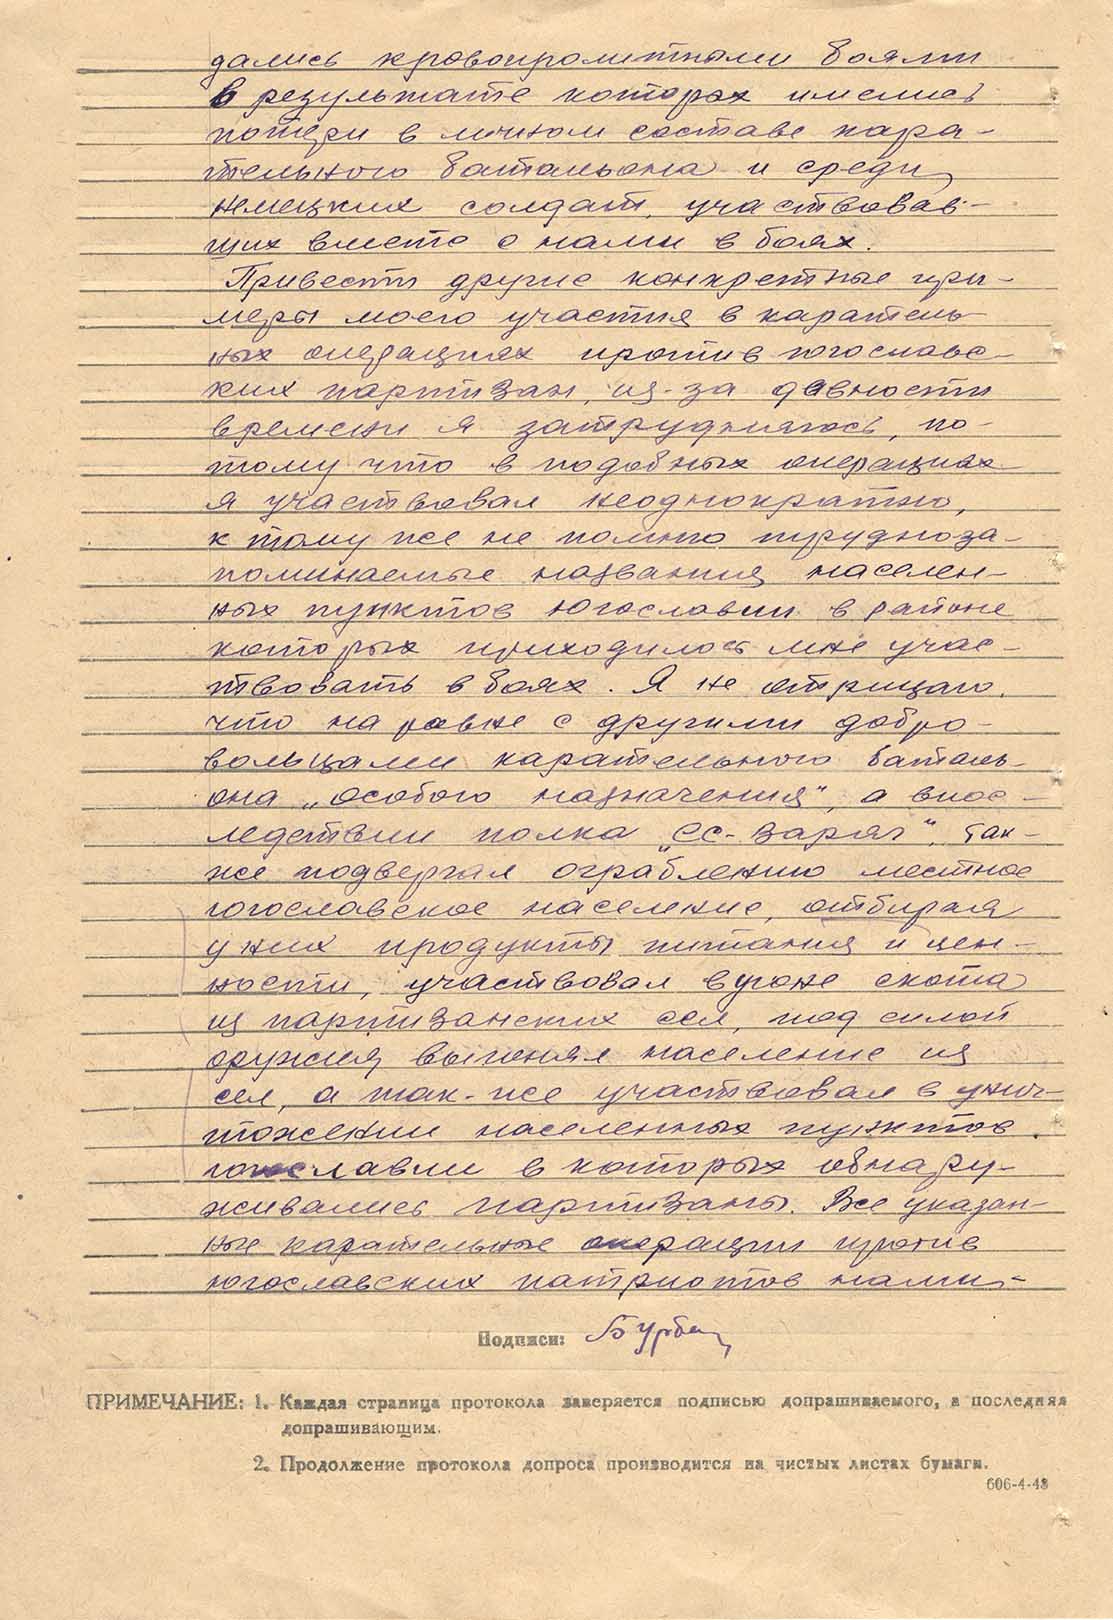 дались кровопролитными боями
в результате которых имелись
потери в личном составе кара-
тельного батальона и среди
немецких солдат, участвовав-
ших вместе с нами в боях.
Привести другие конкретные при-
меры моего участия в каратель-
ных операциях против югославс-
ких партизан, из-за давности
времени я затрудняюсь, по-
тому что в подобных операциях
я участвовал неоднократно,
к тому же не помню труднoза-
поминаемые названия населен-
ных пунктов Югославии в районе
которых приходилось мне учас-
твовать в боях. Я не отрицаю,
что на равне с другими добро-
вольцами карательного баталь-
она „особого назначения", а впос-
ледствии полка „СС-Варяг", так-
же подвергал ограблению местное
югославское население, отбирая
у них продукты питания и цен-
ности, участвовал в угоне скота
из партизанских сел, под силой
оружия выгонял население из
сел, а так-же участвовал в унич-
тожении населенных пунктов
Югославии в которых обнару-
живались партизаны. Все указан-
ные карательные операции против
югославских патриотов нами-
Подписи: Бурбе
ПРИМЕЧАНИЕ: 1. Каждая страница протокола заверяется подписью допрашиваемого, а последняя
допрашивающим.
2. Продолжение протокола допроса производится на чистых листах бумаги.
606-4-48